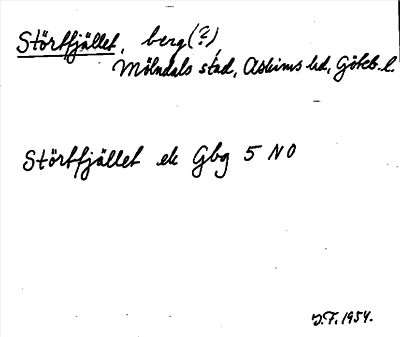 Störtfjället, berg(?),
Mölndals stad, Askims hd, Göteb. l.
Störtfjället ek Gbg 5 NO
J.F. 1954.